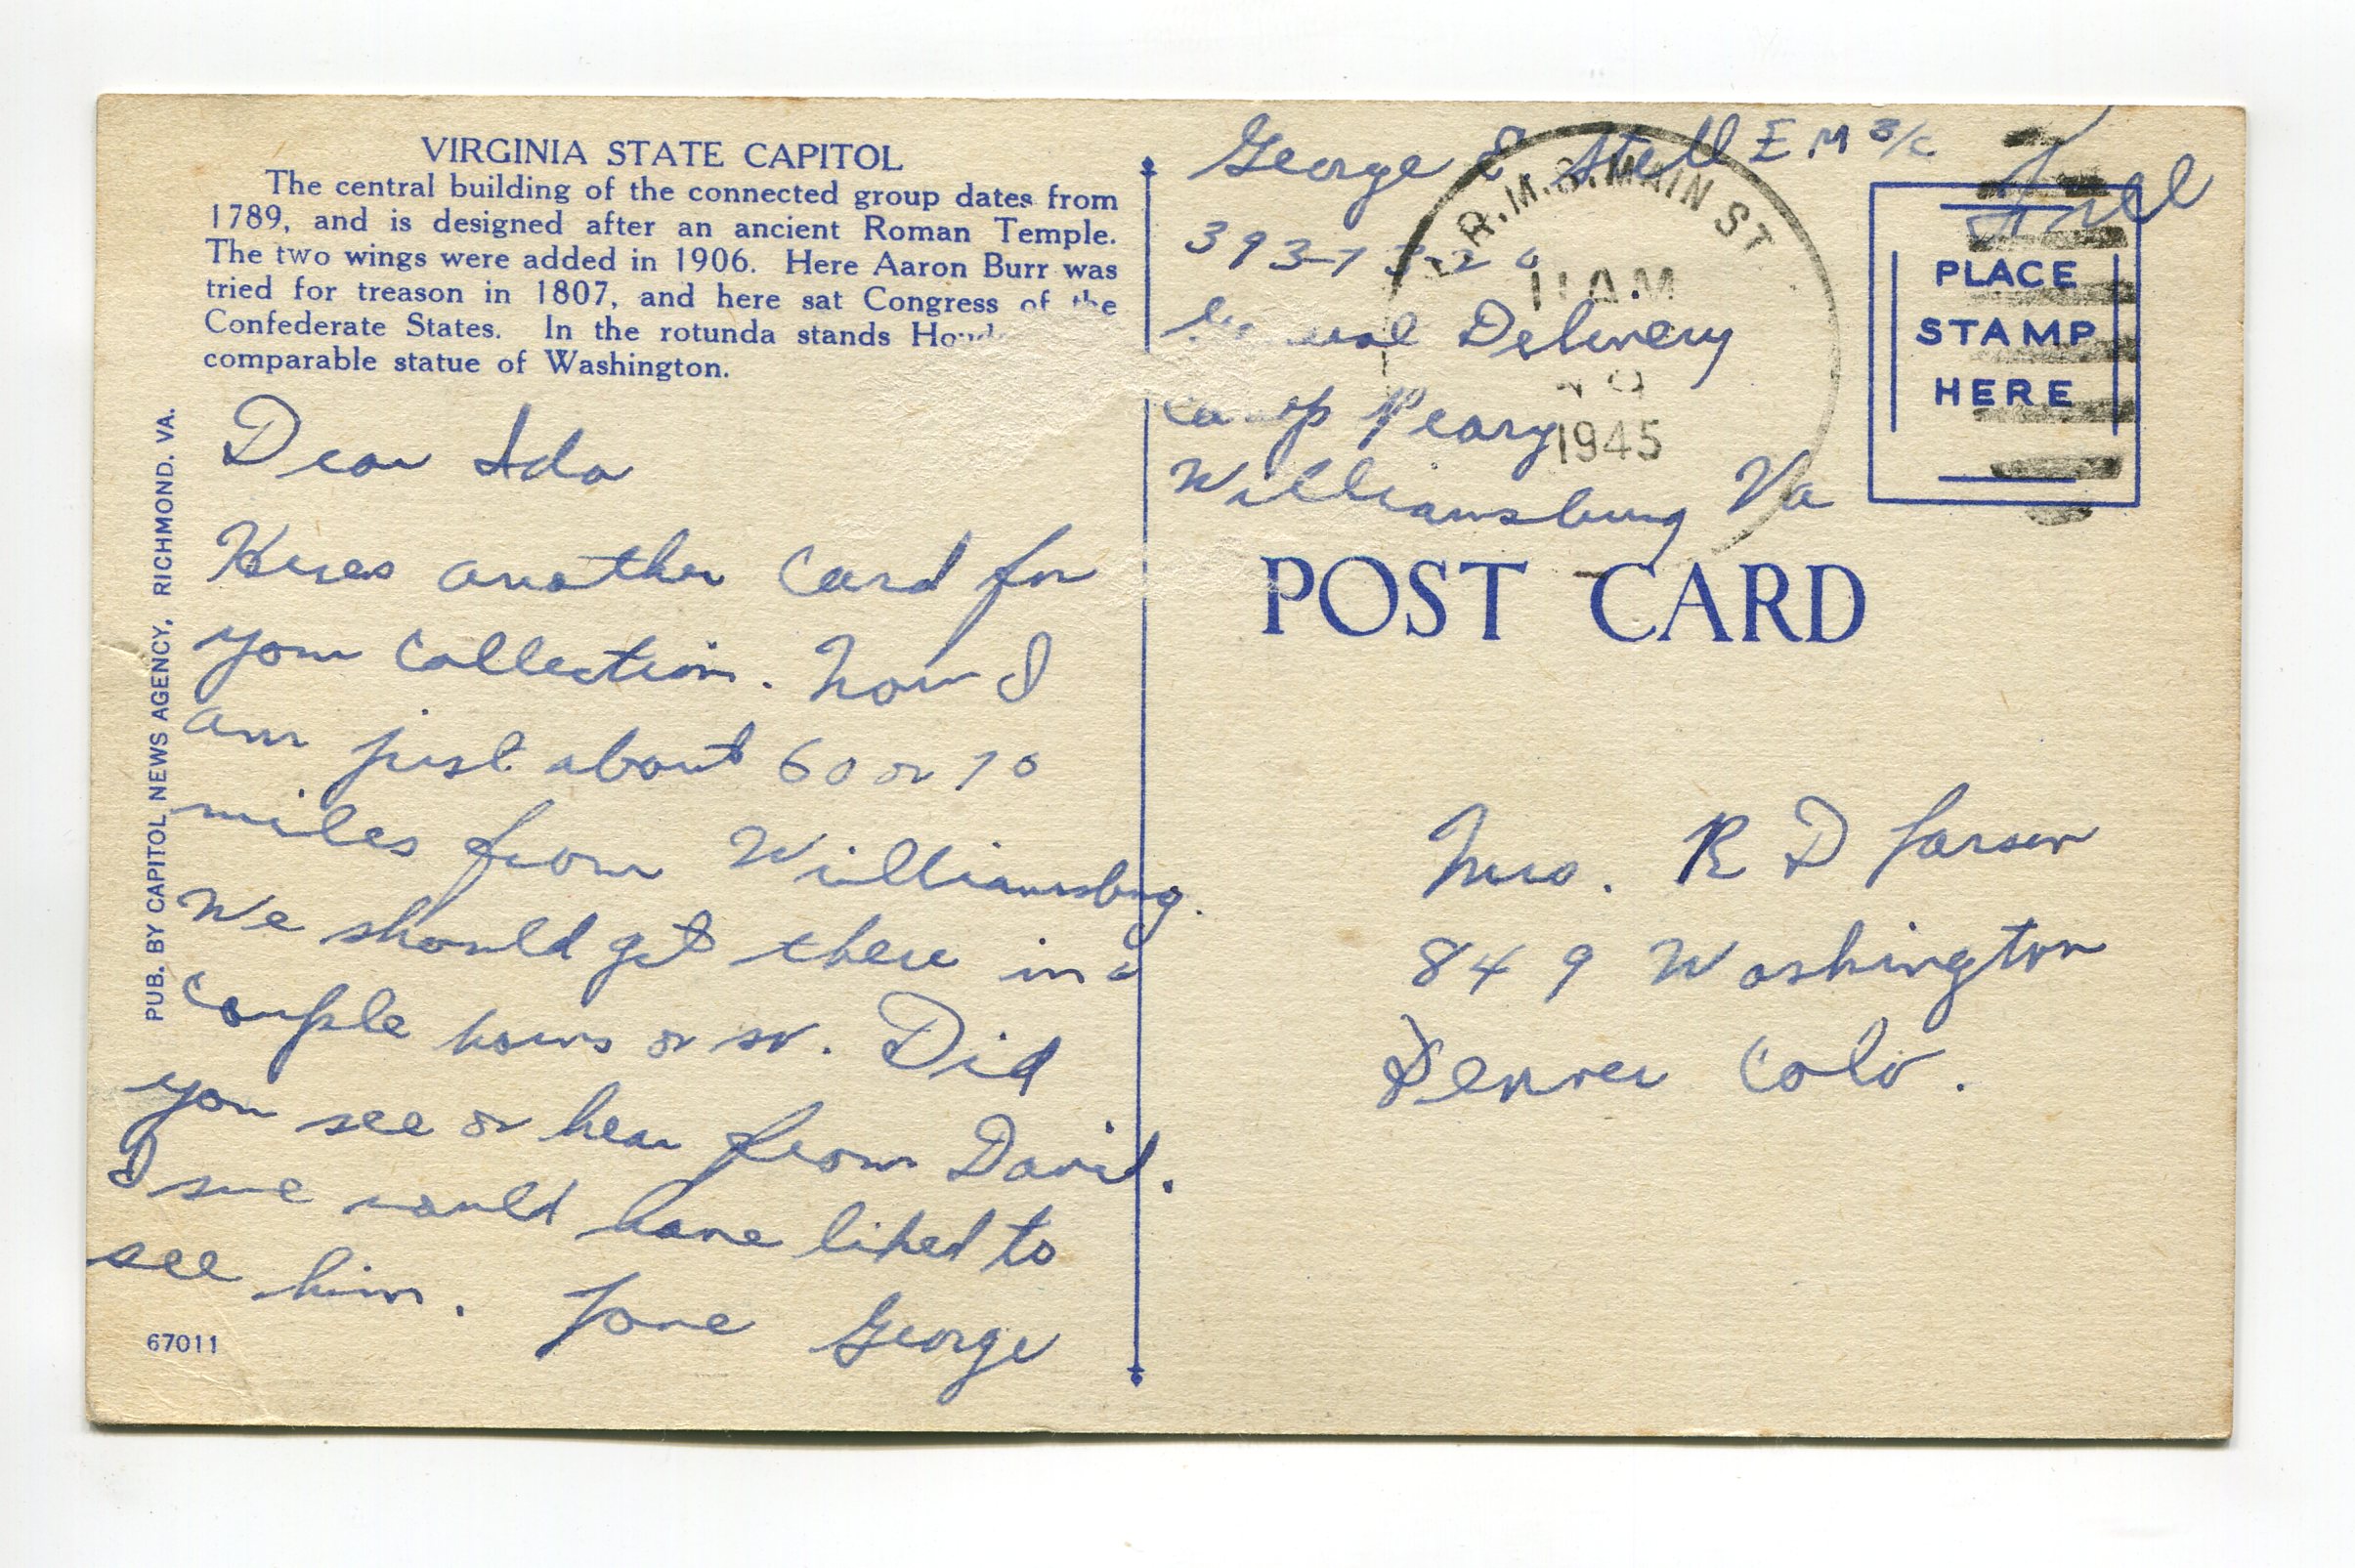 VIRGINIA STATE CAPITOL
The central building of the connected group dates from
1789, and is designed after an ancient Roman Temple.
The two wings were added in 1906. Here Aaron Burr was
tried for treason in 1807, and here sat Congress of the
Confederate States. In the rotunda stands
comparable statue of Washington.
PUB. BY CAPITOL NEWS AGENCY, RICHMOND. VA.
Dear Ida
Heres another Card for
your Collection. Now I
am just about 60 or 70
miles from Williamsburg.
We should get there in a
couple hours or so. Did
you see or hear from David.
I sure would have liked to
see him. Love George
67011
George E Stell E M 3/c
Free
General Delivery
Camp Peary
Williamsburg Va
R.M.S. MAIN ST
11 AM
1945
PLACE
STAMP
HERE
POST CARD
Mrs. R D Larsen
849 Washington
Denver Colo.